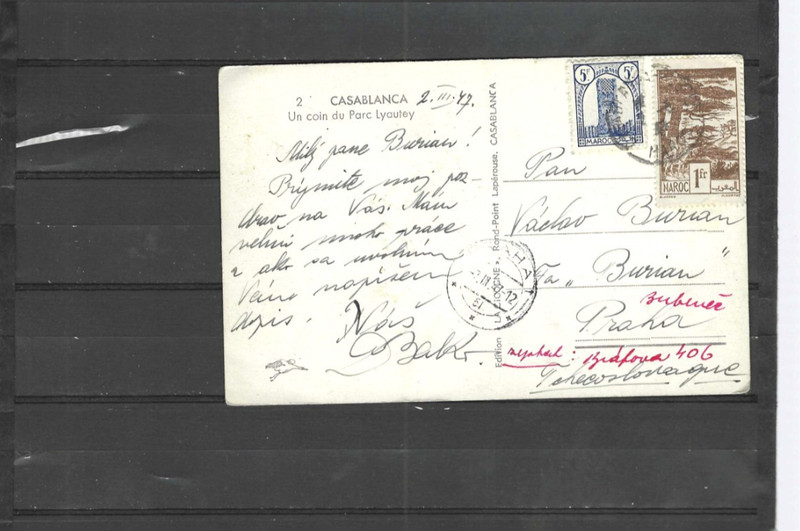 2 CASABLANCA 2.III.47
Un coin du Parc Lyautey
Milý pane Burian!
Prijmite moj poz-
drav na Vás. Mám
veľmi mnoho práce
a ako sa uvolním
Vám napíšem
dopis. Váš
Bako
Edition "LA CIGOGNE", Rond-Point Lapérouse, CASABLANCA
5F 5F
MAROC
MAROC 1fr
Pan
Václav Burian
Fa „Burian"
bubeneč
Praha
: Bráfova 406
Tchecoslovaquie
PRAHA